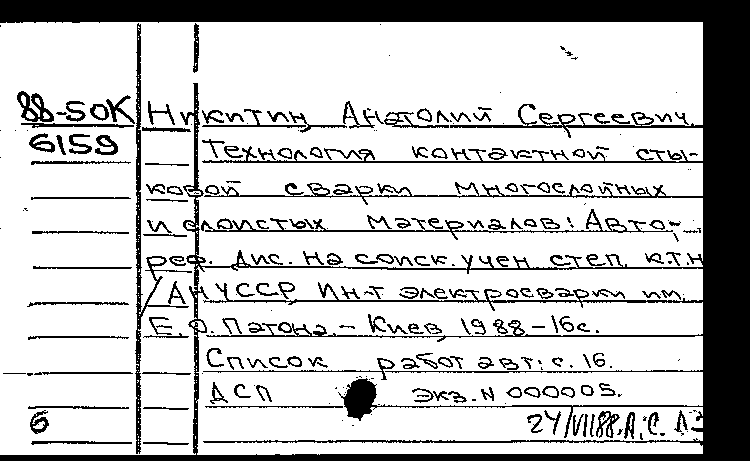 88-5ОК Никитин Анатолий Сергеевич.
6159 Технология контактной сты-
ковой сварки многослойных
и слоистых материалов: Авто-
реф. дис. на соиск. учен. степ. к.т.н
/АН УССР Ин-т электросварки им.
Е.О. Патона. - Киев, 1988 - 16с.
Список работ авт: с. 16.
ДСП экз. N 000005.
б 24/VII88.А.С.